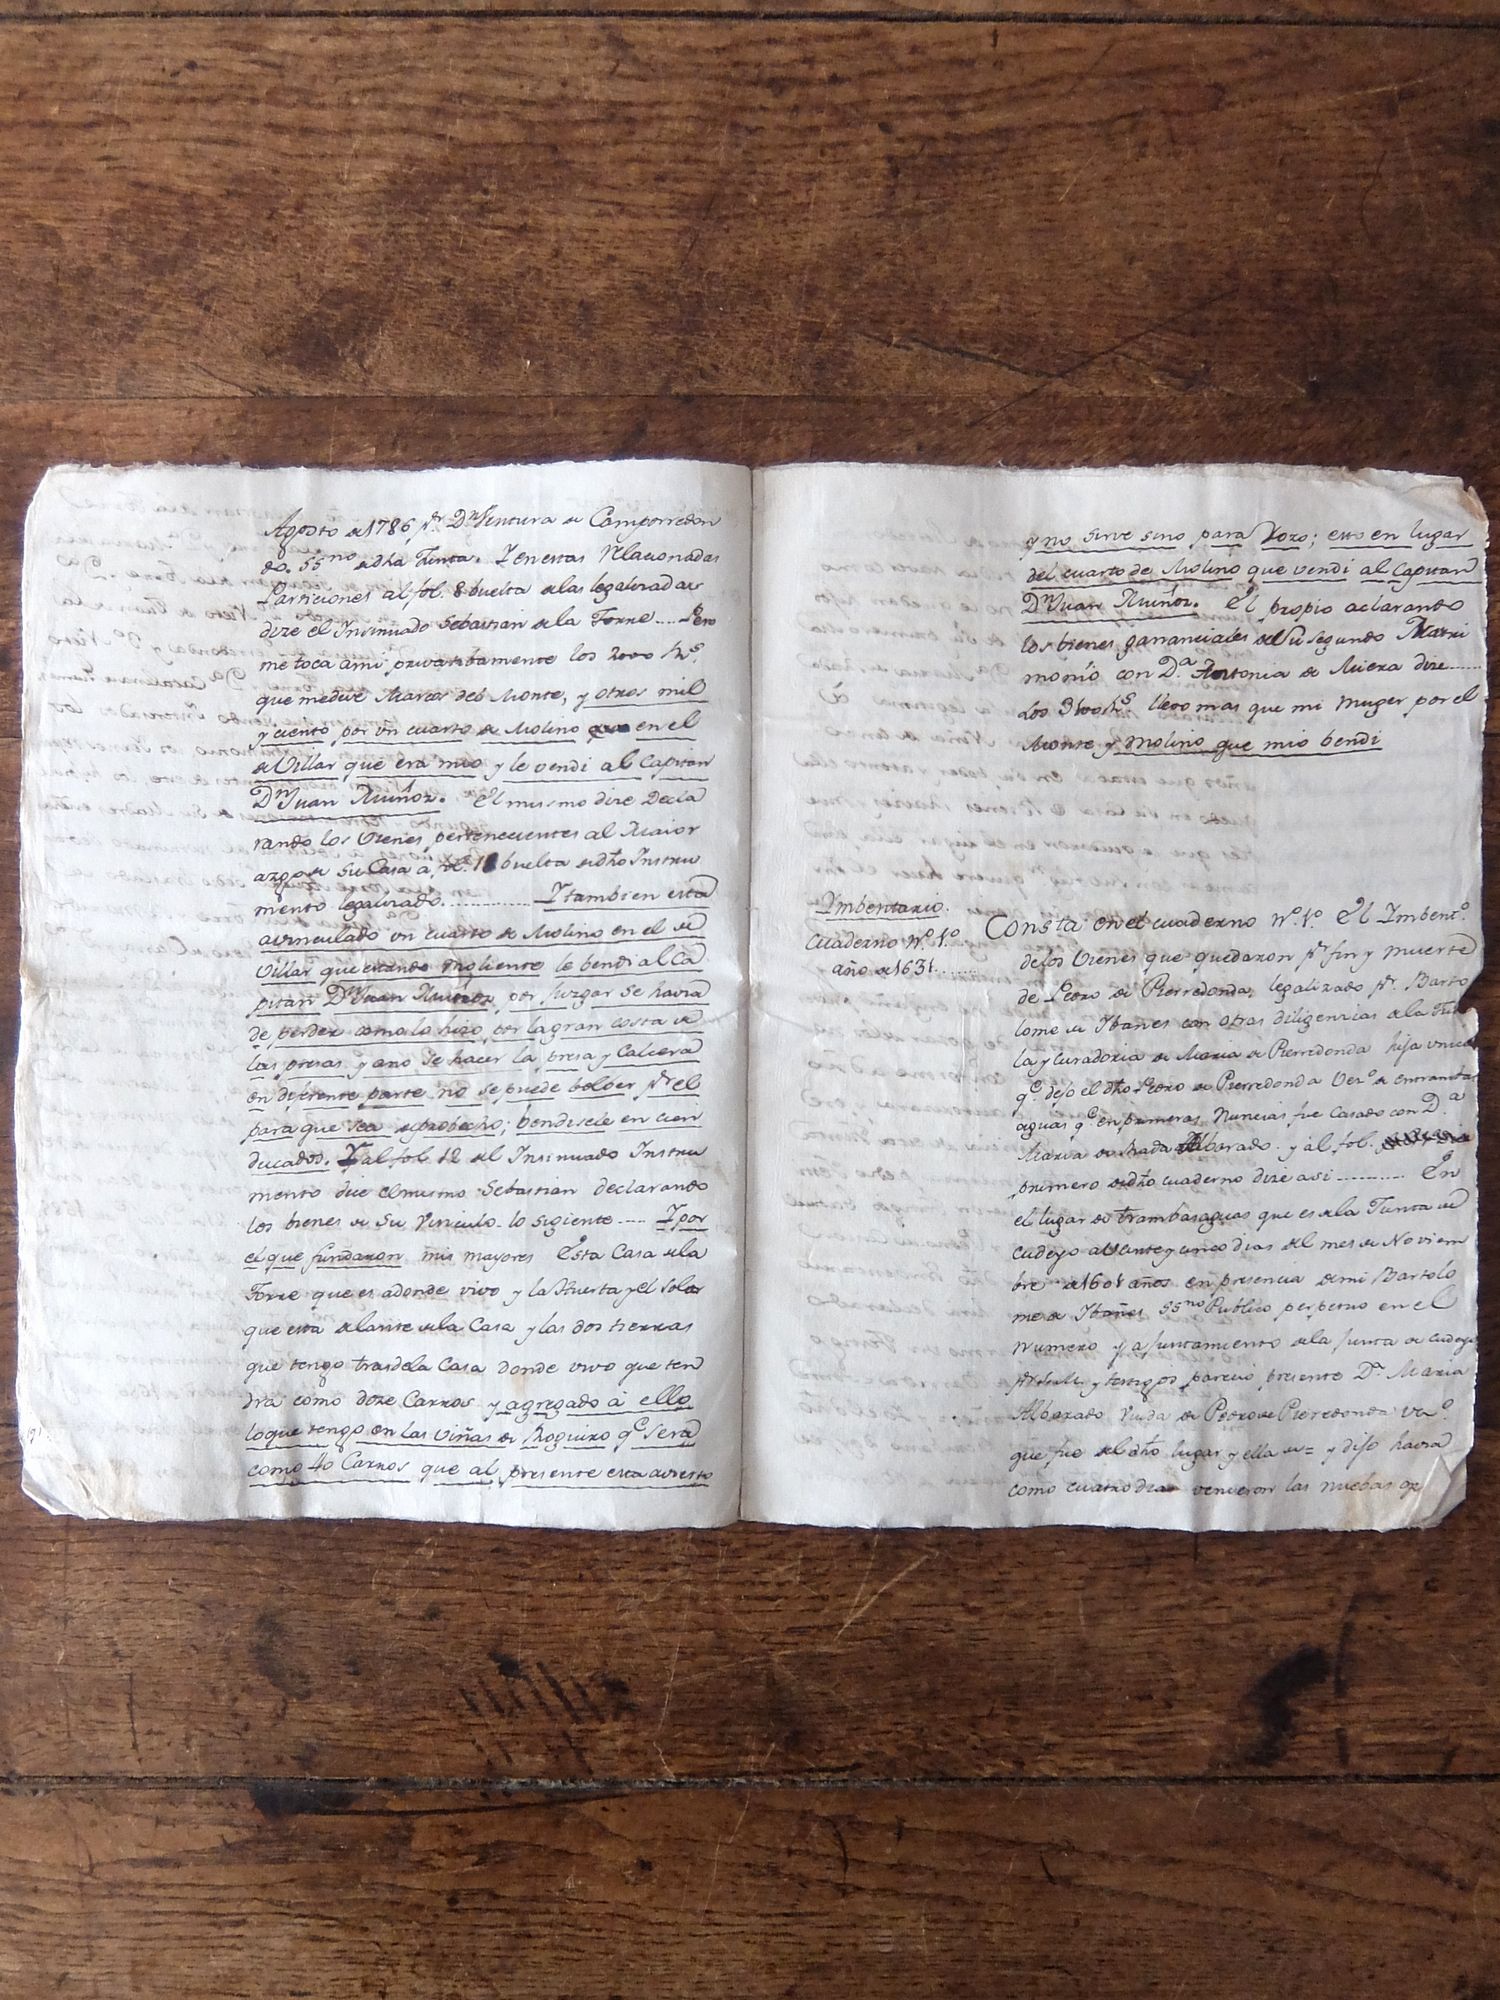 Agosto de 1786 pr. Dn. Ventura de Camporredon
do. SSno de dha Junta. Y en estas Relacionadas
Particiones al fol. 8 buelta de las legalizadas
dize el Insinuado Sebastian de la Torre .... Pero
me toca a mi privatibamente los 2000 Rs.
que me dive Marcos del Monte, y otros mil
y ciento por vn cuarto de Molino en el
de Villar que era mio y le vendi al Capitan
Dn. Juan Muñoz. El mismo dize Decla
rando los Vienes pertenecientes al Maior
azgo de su Casa á fol. buelta de dho Instru
mento legalizado ............ Y tambien esta
avinculado vn cuarto de Molino en el de
Villar que estando moliente le bendi al Ca
pitan Dn. Juan Muñoz, por juzgar se havia
de perder como lo hizo, por la gran costa de
las presas y a no se hacer la presa y Calcera
en diferente parte no se puede bolber pr. el
para que sea de probecho; bendisele en cien
ducados. Y al fol. 12 del Insinuado Instru
mento dice el mismo Sebastian declarando
los bienes de su Vinculo lo sigiente .... Y por
el que fundaron mis mayores Esta Casa de la
Torre que es adonde vivo y la Huerta y el Solar
que esta delante de la Casa y las dos tierras
que tengo tras de la Casa donde vivo que ten
dra como doze Carros y agregado á ello
lo que tengo en las viñas de qe. Sera
como 40 Carros que al presente esta avierto
y no sirve sino para Rozo; esto en lugar
del cuarto de Molino que vendi al Capitan
Dn. Juan Muñoz. El propio aclarando
los bienes gananciales de su segundo Matri
monio con Da. Antonia de Miera dize ......
Los Rs. llevo mas que mi Muger por el
Monte y Molino que mio bendi
Imbentario.
Cuaderno No. 1o.
año de 1631 ......
Consta en el cuaderno No. 1o. El Imbento.
de los Vienes que quedaron pr. fin y muerte
de Pedro de Pierredonda, legalizado pr. Barto
lome de Ibañes con otras diligenzias de la Tute
la y curadoria de Maria de Pierredonda hija vnica
qe. dejo el dho Pedro de Pierredonda Vezo. de entrambas
aguas qe. en primeras Nuncias fue Casado con Da.
Maria de Alborado. y al fol.
primero de dho cuaderno dize asi ........... En
el lugar de trambasaguas que es de la Junta de
cudeyo a veinte y cinco dias del mes de Noviem
bre de 1601 años en presencia de mi Bartolo
me de Ibañes SSno Publico perpetuo en el
Numero y ajuntamiento de la Junta de cudeyo
y testigos parecio presente Da. Maria
Alborado Viuda de Pedro de Pieredonda Vezo.
que fue del dho lugar y ella de = y dijo havia
como cuatro dias venieron las nuebas qe